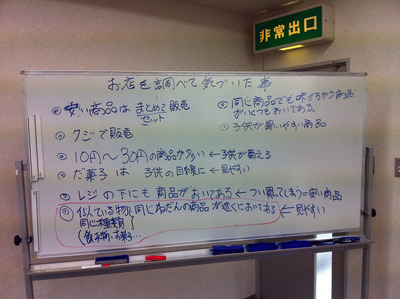 非常出口
お店を調べて気づいた事
◎ 安い商品は まとめて販売
セット
◎ クジで販売
◎ 10円〜30円の商品が多い ← 子供が買える
◎ だ菓子は 子供の目線に ← 見やすい
◎ レジの下にも 商品がおいてある ← つい買ってしまう = 安い商品
◎ 似ている物、同じねだんの商品が近くにおいてある ← 見やすい
同じ種類
(飲み物・お菓子…
◎ 同じ商品でも味のちがう商品
がいくつもおいてある。
◎ 子供が買いやすい商品